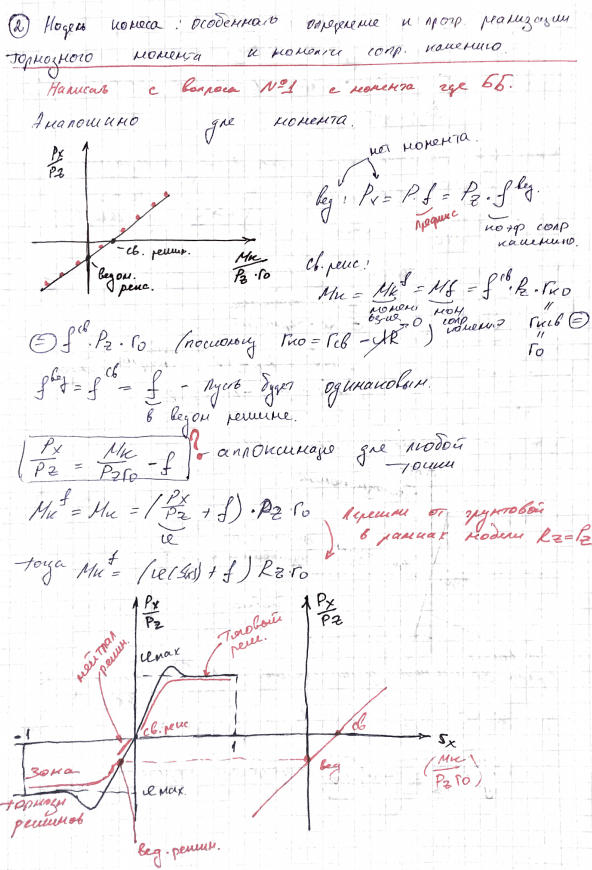 ② Модель колеса: особенность определение и прогр. реализации
тормозного момента и момента сопр. качению.
Написать с вопроса №1 с момента где ББ.
Аналогично для момента.
Px/Pz
св. режим.
ведом. режс.
Mк/Pz·r0
нет момента.
вед: Px = P·f = Pz·f вед.
коэф сопр качению.
Св. режс:
Mк = Mк f = Mf = f св·Pz·rко
момент
мом сопр качению
rксв =
r0
= f св·Pz·r0 (поскольку rко = rсв - ΔR → 0)
f вед = f св = f - пусть будет одинаковым.
в ведом режиме.
Px/Pz = Mк/Pzr0 - f ? - аппроксимаце для любой точки
Mк f = Mк = (Px/Pz + f)·Pz·r0
ϰ
Перешли от грунтовой
в рамках модели Rz=Pz
тогда Mк f = (ϰ(Sx) + f) Rz·r0
Px/Pz
Px/Pz
нейтрал режим.
ϰmax
Тяговый реж.
св. режс
-1
1
св
Sx
Зона
тормозн режимов
ϰmax.
вед
(Mк/Pzr0)
вед. режим.